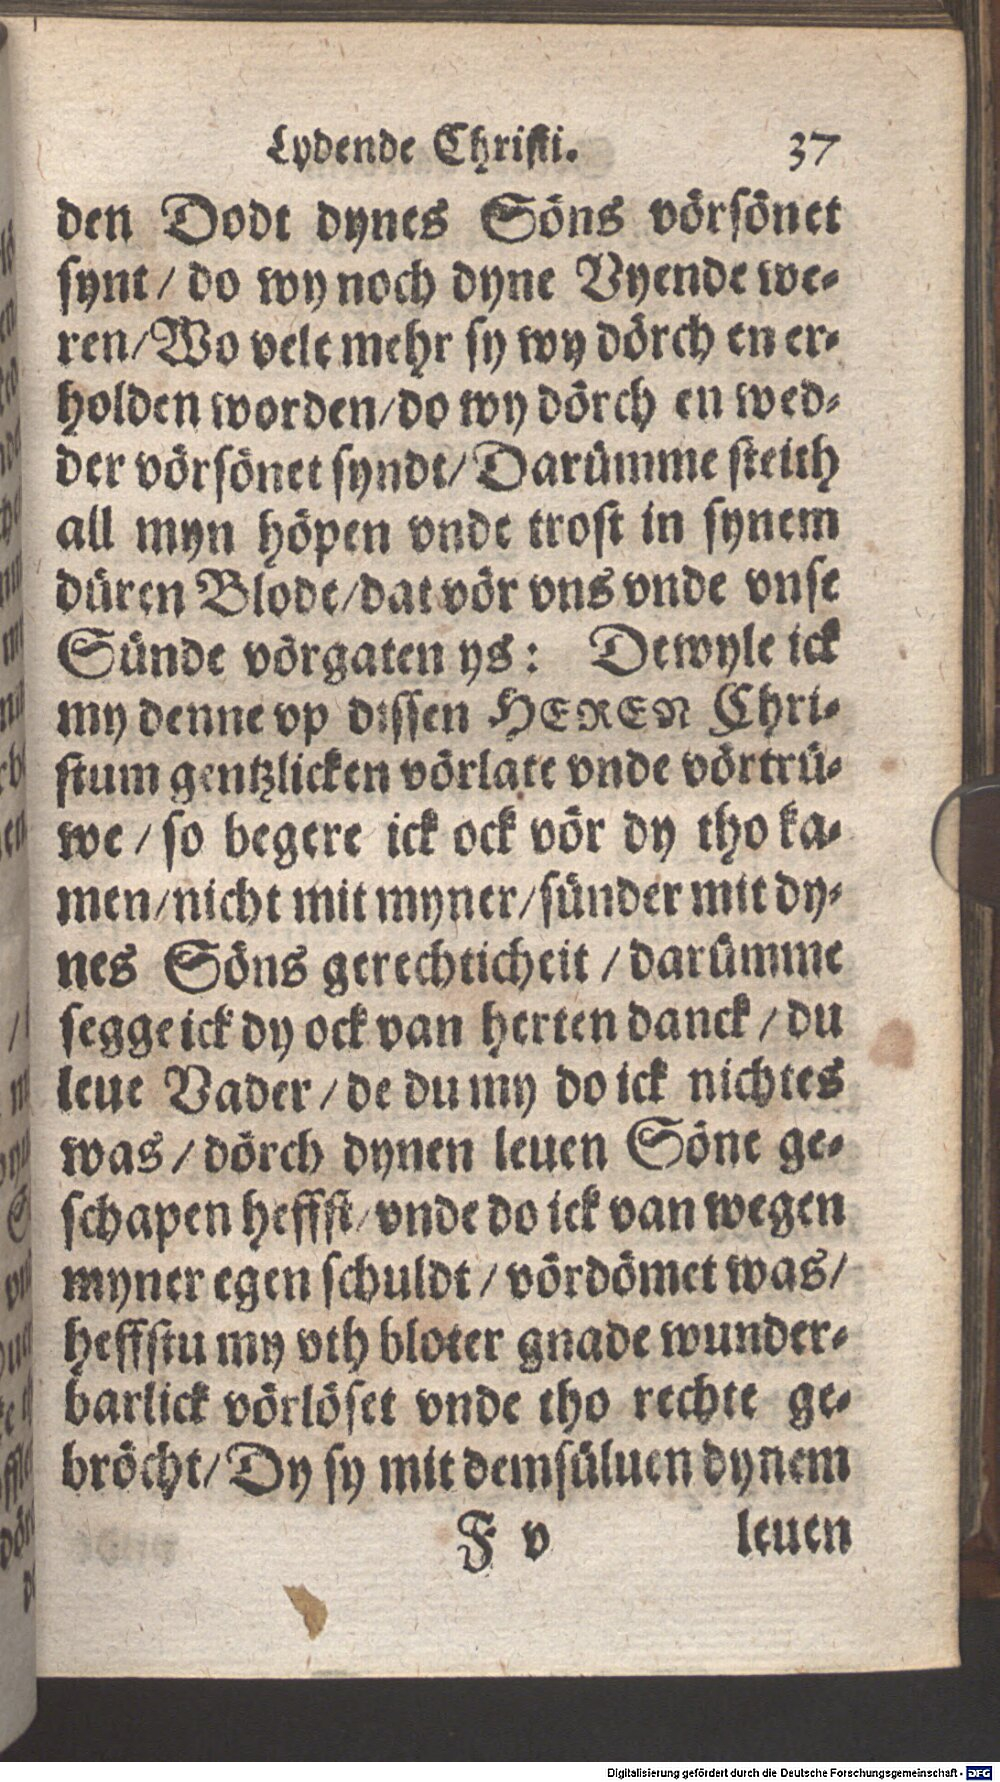 Lydende Christi. 37
den Dodt dynes Söns vörsönet
synt / do wy noch dyne Vyende we-
ren / Wo vele mehr sy wy dörch en er-
holden worden / do wy dörch en wed-
der vörsönet syndt / Darümme steith
all myn höpen vnde trost in synem
düren Blode / dat vör vns vnde vnse
Sünde vörgaten ys : Dewyle ick
my denne vp dissen HEREN Chri-
stum gentzlicken vörlate vnde vörtrü-
we / so begere ick ock vör dy tho ka-
men / nicht mit myner / sünder mit dy-
nes Söns gerechticheit / darümme
segge ick dy ock van herten danck / du
leue Vader / de du my do ick nichtes
was / dörch dynen leuen Söne ge-
schapen heffst / vnde do ick van wegen
myner egen schuldt / vördömet was /
heffstu my vth bloter gnade wunder-
barlick vörlöset vnde tho rechte ge-
bröcht / Dy sy mit demsüluen dynem
F v leuen
Digitalisierung gefördert durch die Deutsche Forschungsgemeinschaft - DFG